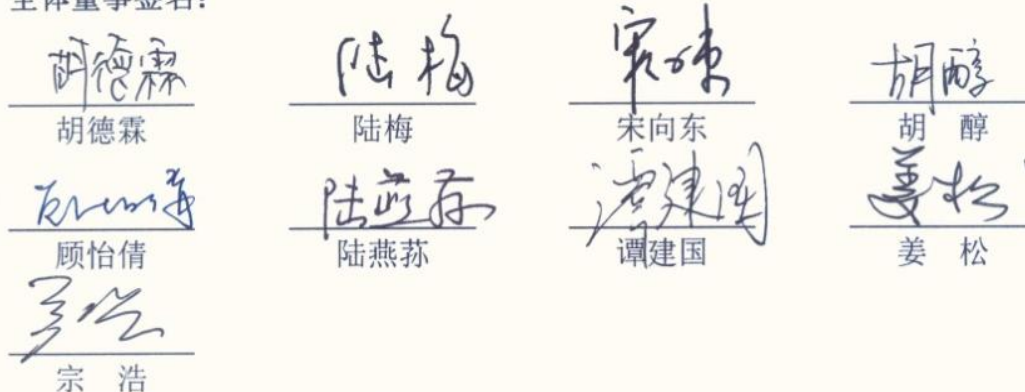 全体董事签名：
胡德霖 陆梅 宋向东 胡醇
胡德霖 陆梅 宋向东 胡 醇
陆燕荪 谭建国 姜松
顾怡倩 陆燕荪 谭建国 姜 松
宗 浩